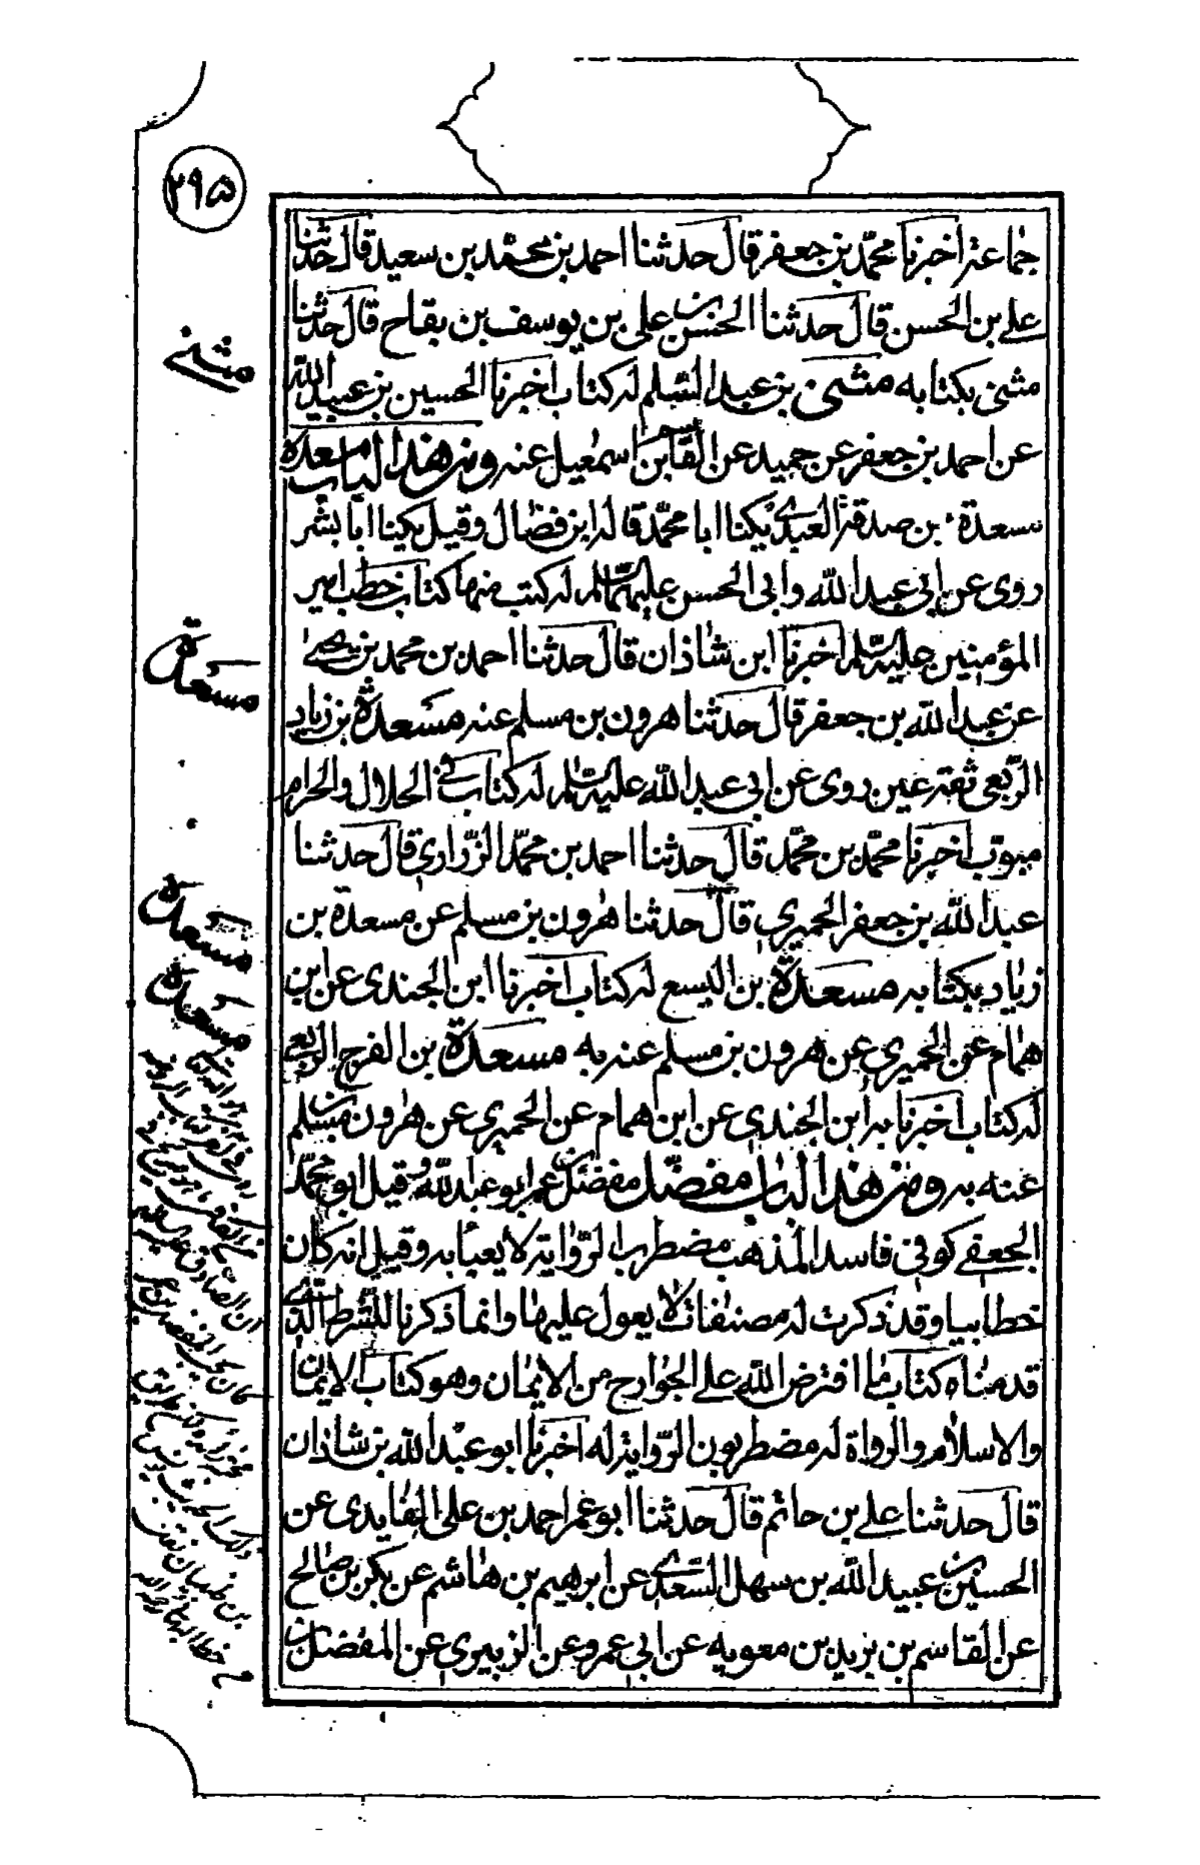 ۲۹۵
جماعة اخبرنا محمّد بن جعفر قال حدثنا احمد بن محمّد بن سعيد قال حدثنا
على بن الحسن قال حدثنا الحسن بن على بن يوسف بن بقاح قال حدثنا
مثنى بكتابه مثنى بن عبد السّلم له كتاب اخبرنا الحسين بن عبيد اللّه
عن احمد بن جعفر عن حميد عن القاسم بن اسمعيل عنه ومن هذا الباب مسعدة
مسعدة بن صدقة العبدى يكنا ابا محمّد قاله ابن فضّال وقيل يكنا ابا بشر
روى عن ابى عبد اللّه وابى الحسن عليهما السّلم له كتب منها كتاب خطب امير
المؤمنين عليه السّلم اخبرنا ابن شاذان قال حدثنا احمد بن محمد بن يحيى
عن عبد اللّه بن جعفر قال حدثنا هرون بن مسلم عنه مسعدة بن زياد
الرّبعى ثقة عين روى عن ابى عبد اللّه عليه السّلم له كتاب فى الحلال والحرام
مبوّب اخبرنا محمّد بن محمّد قال حدثنا احمد بن محمّد الزّرارى قال حدثنا
عبد اللّه بن جعفر الحميرى قال حدثنا هرون بن مسلم عن مسعدة بن
زياد بكتابه مسعدة بن اليسع له كتاب اخبرنا ابن الجندى عن ابن
همام عن الحميرى عن هرون بن مسلم عنه به مسعدة بن الفرج الربعى
له كتاب اخبرنا به ابن الجندى عن ابن همام عن الحميرى عن هرون بن مسلم
عنه به ومن هذا الباب مفضّل مفضّل بن عمر ابو عبد اللّه وقيل ابو محمّد
الجعفى كوفى فاسد المذهب مضطرب الرّواية لا يعبأ به وقيل انه كان
خطابيا وقد ذكرت له مصنفات لا يعول عليها وانما ذكرنا للشّرط الّذى
قدمناه كتاب ما افترض اللّه على الجوارح من الايمان وهو كتاب الايمان
والاسلام والرواة له مضطربون الرّواية له اخبرنا ابو عبد اللّه بن شاذان
قال حدثنا على بن حاتم قال حدثنا ابو عمر احمد بن على الفايدى عن
الحسين بن عبيد اللّه بن سهل السّعدى عن ابرهيم بن هاشم عن بكر بن صالح
عن القاسم بن بريد بن معويه عن ابى عمرو عن الزبيرى عن المفضل بن
مثنى
مسعدة
مسعدة
مسعدة